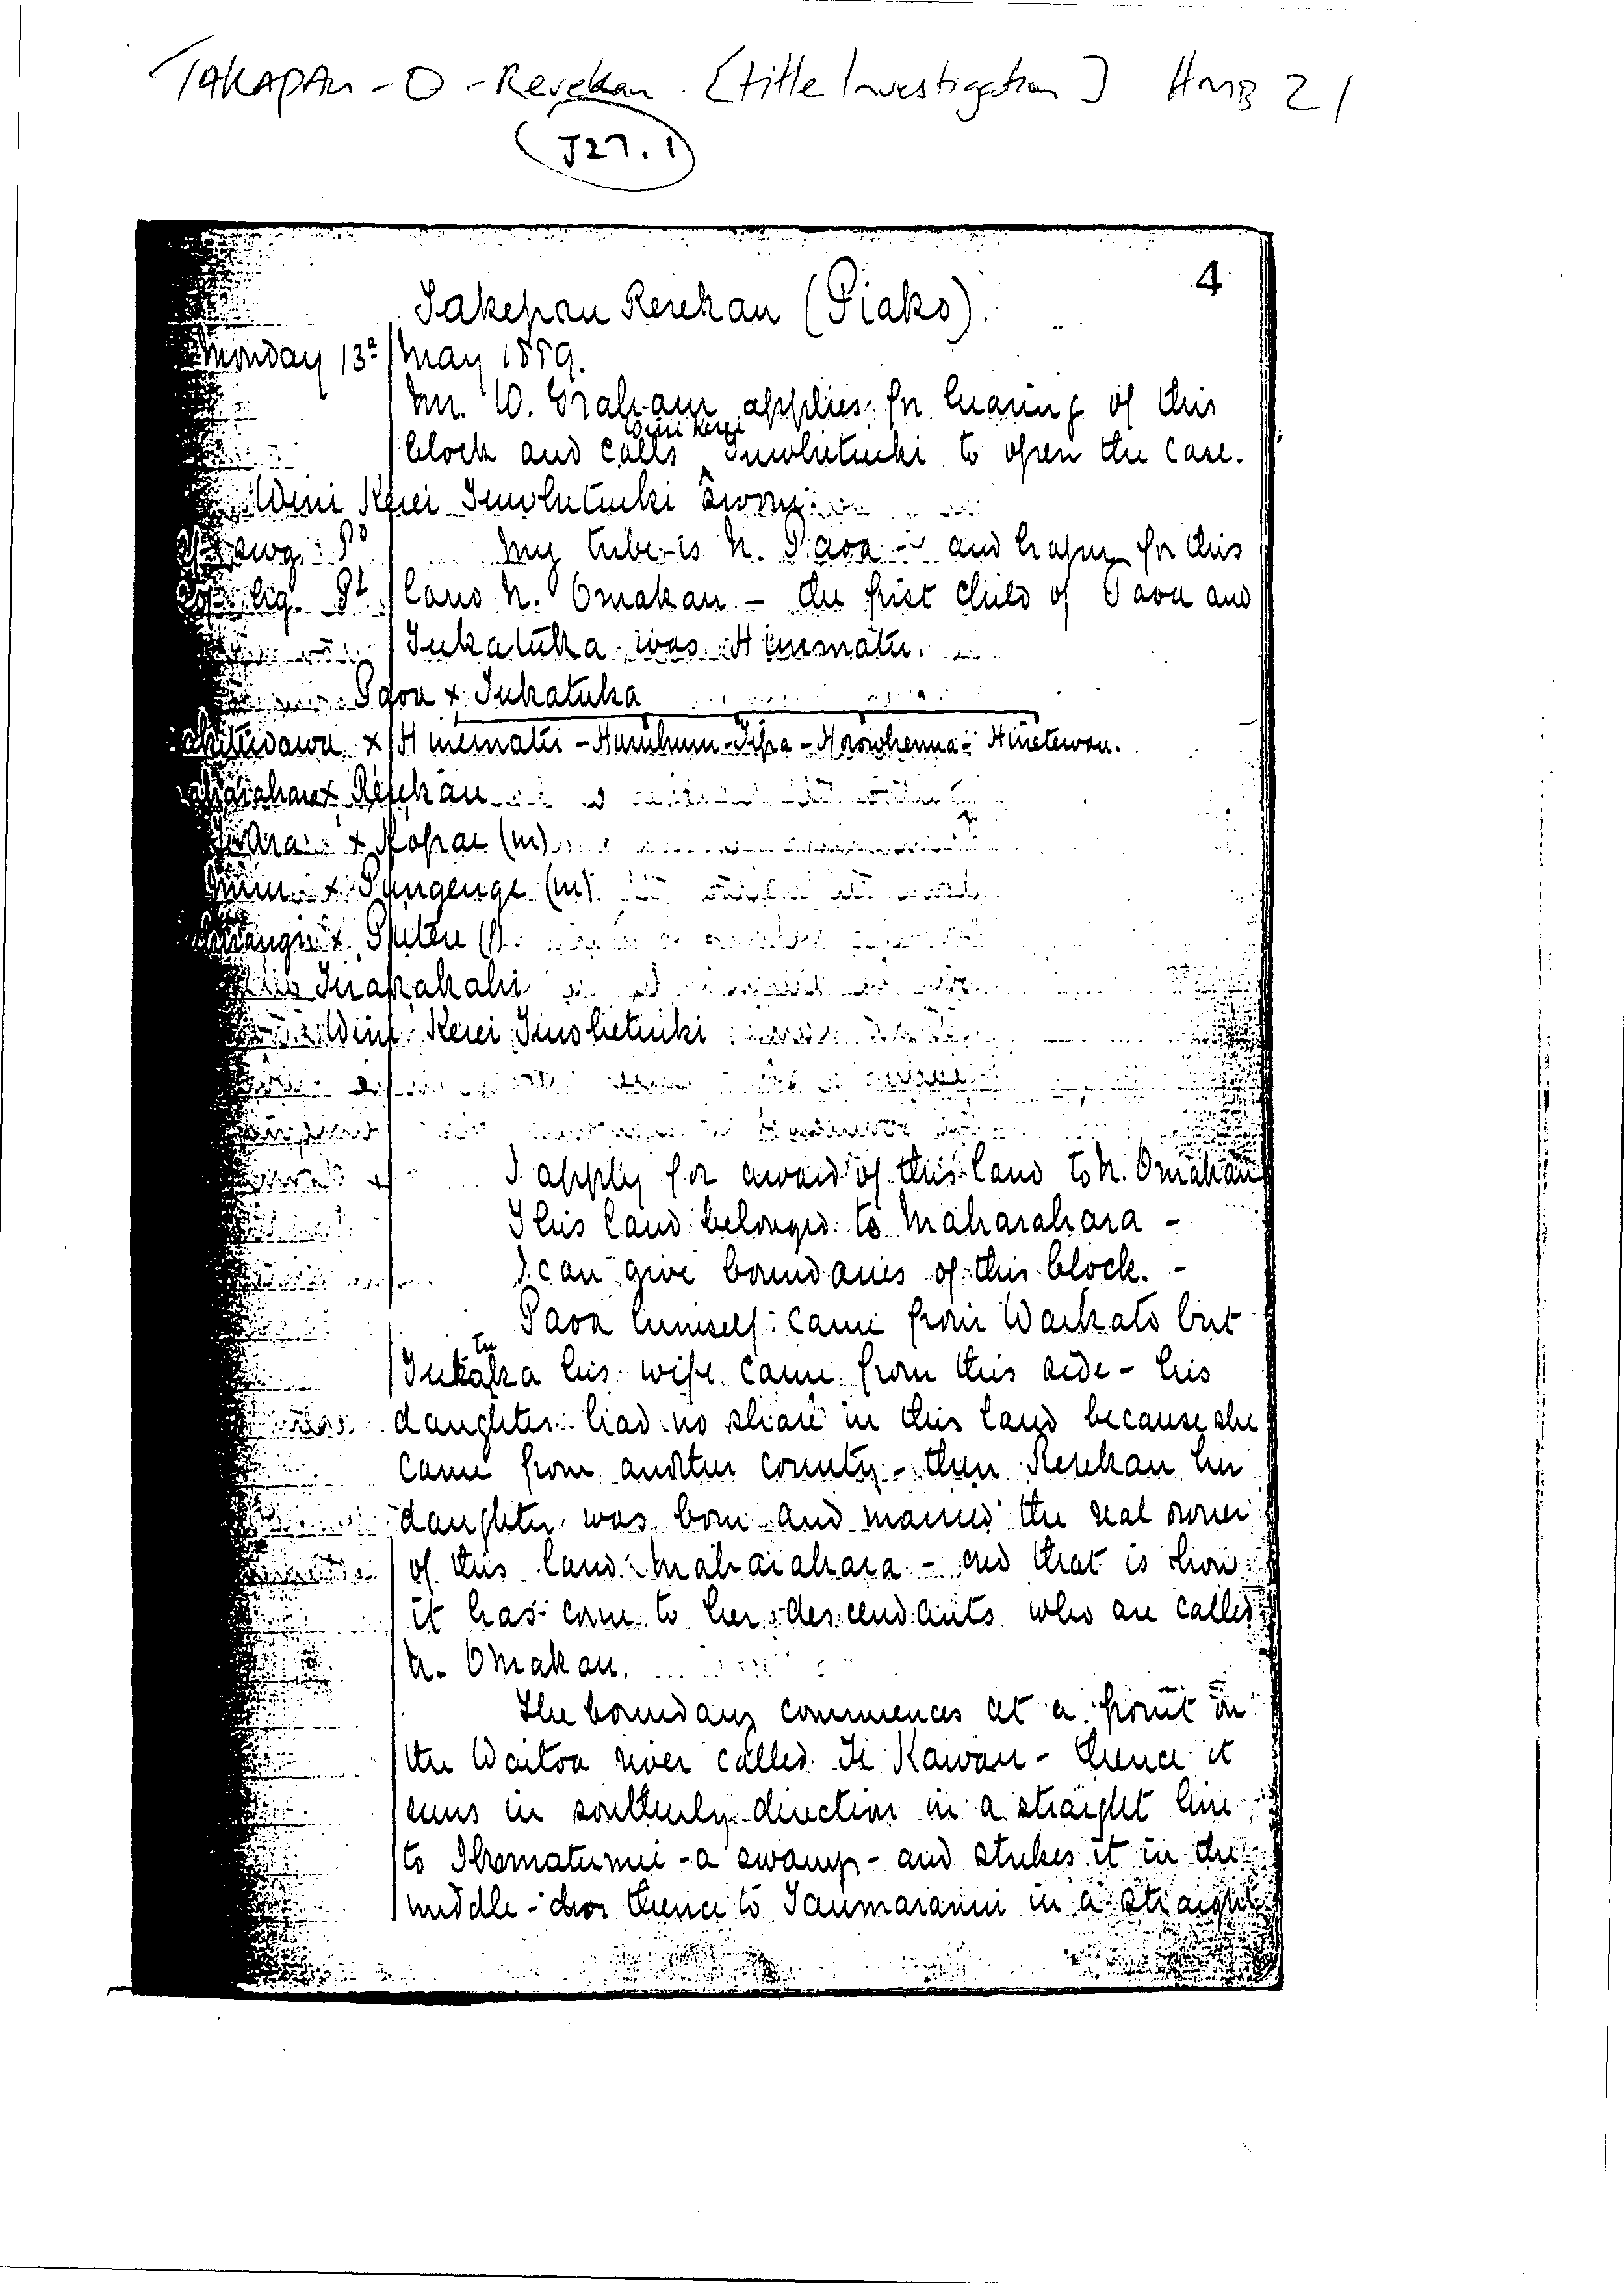 TAKAPAU - O - Rerekau. [title Investigation] HMB 21
J27.1
4
Takepau Rerekau (Piako).
Monday 13th May 1889.
Mr. W. Graham applies for hearing of this
Wini Kerei
block and calls Te Whetuiki to open the case.
Wini Kerei Te Whetuiki Sworn:
My tribe is N. Paoa and hapu for this
land N. Omakau - the first child of Paoa and
Tukatuka was Hinematu.
Paoa x Tukatuka
x Hinematu - Hurihuri - Tipa - Horowhenua - Hinetewau.
x Rerekau
x Hopae (m)
x Pungenge (m)
x (f).
Te Whetuiki
Wini Kerei Te Whetuiki
I apply for award of this land to N. Omakau
This land belonged to Maharahara -
I can give boundaries of this block. -
Paoa himself came from Waikato but
tu
Tukaka his wife came from this side - his
daughter had no share in this land because she
came from another county - then Rerekau her
daughter was born and married the real owner
of this land Maharahara - and that is how
it has come to her descendants who are called
N. Omakau.
The boundary commences at a point on
the Waitoa river called Te Kawau - thence it
runs in southerly direction in a straight line
to - a swamp - and strikes it in the
middle - thence to in a straight